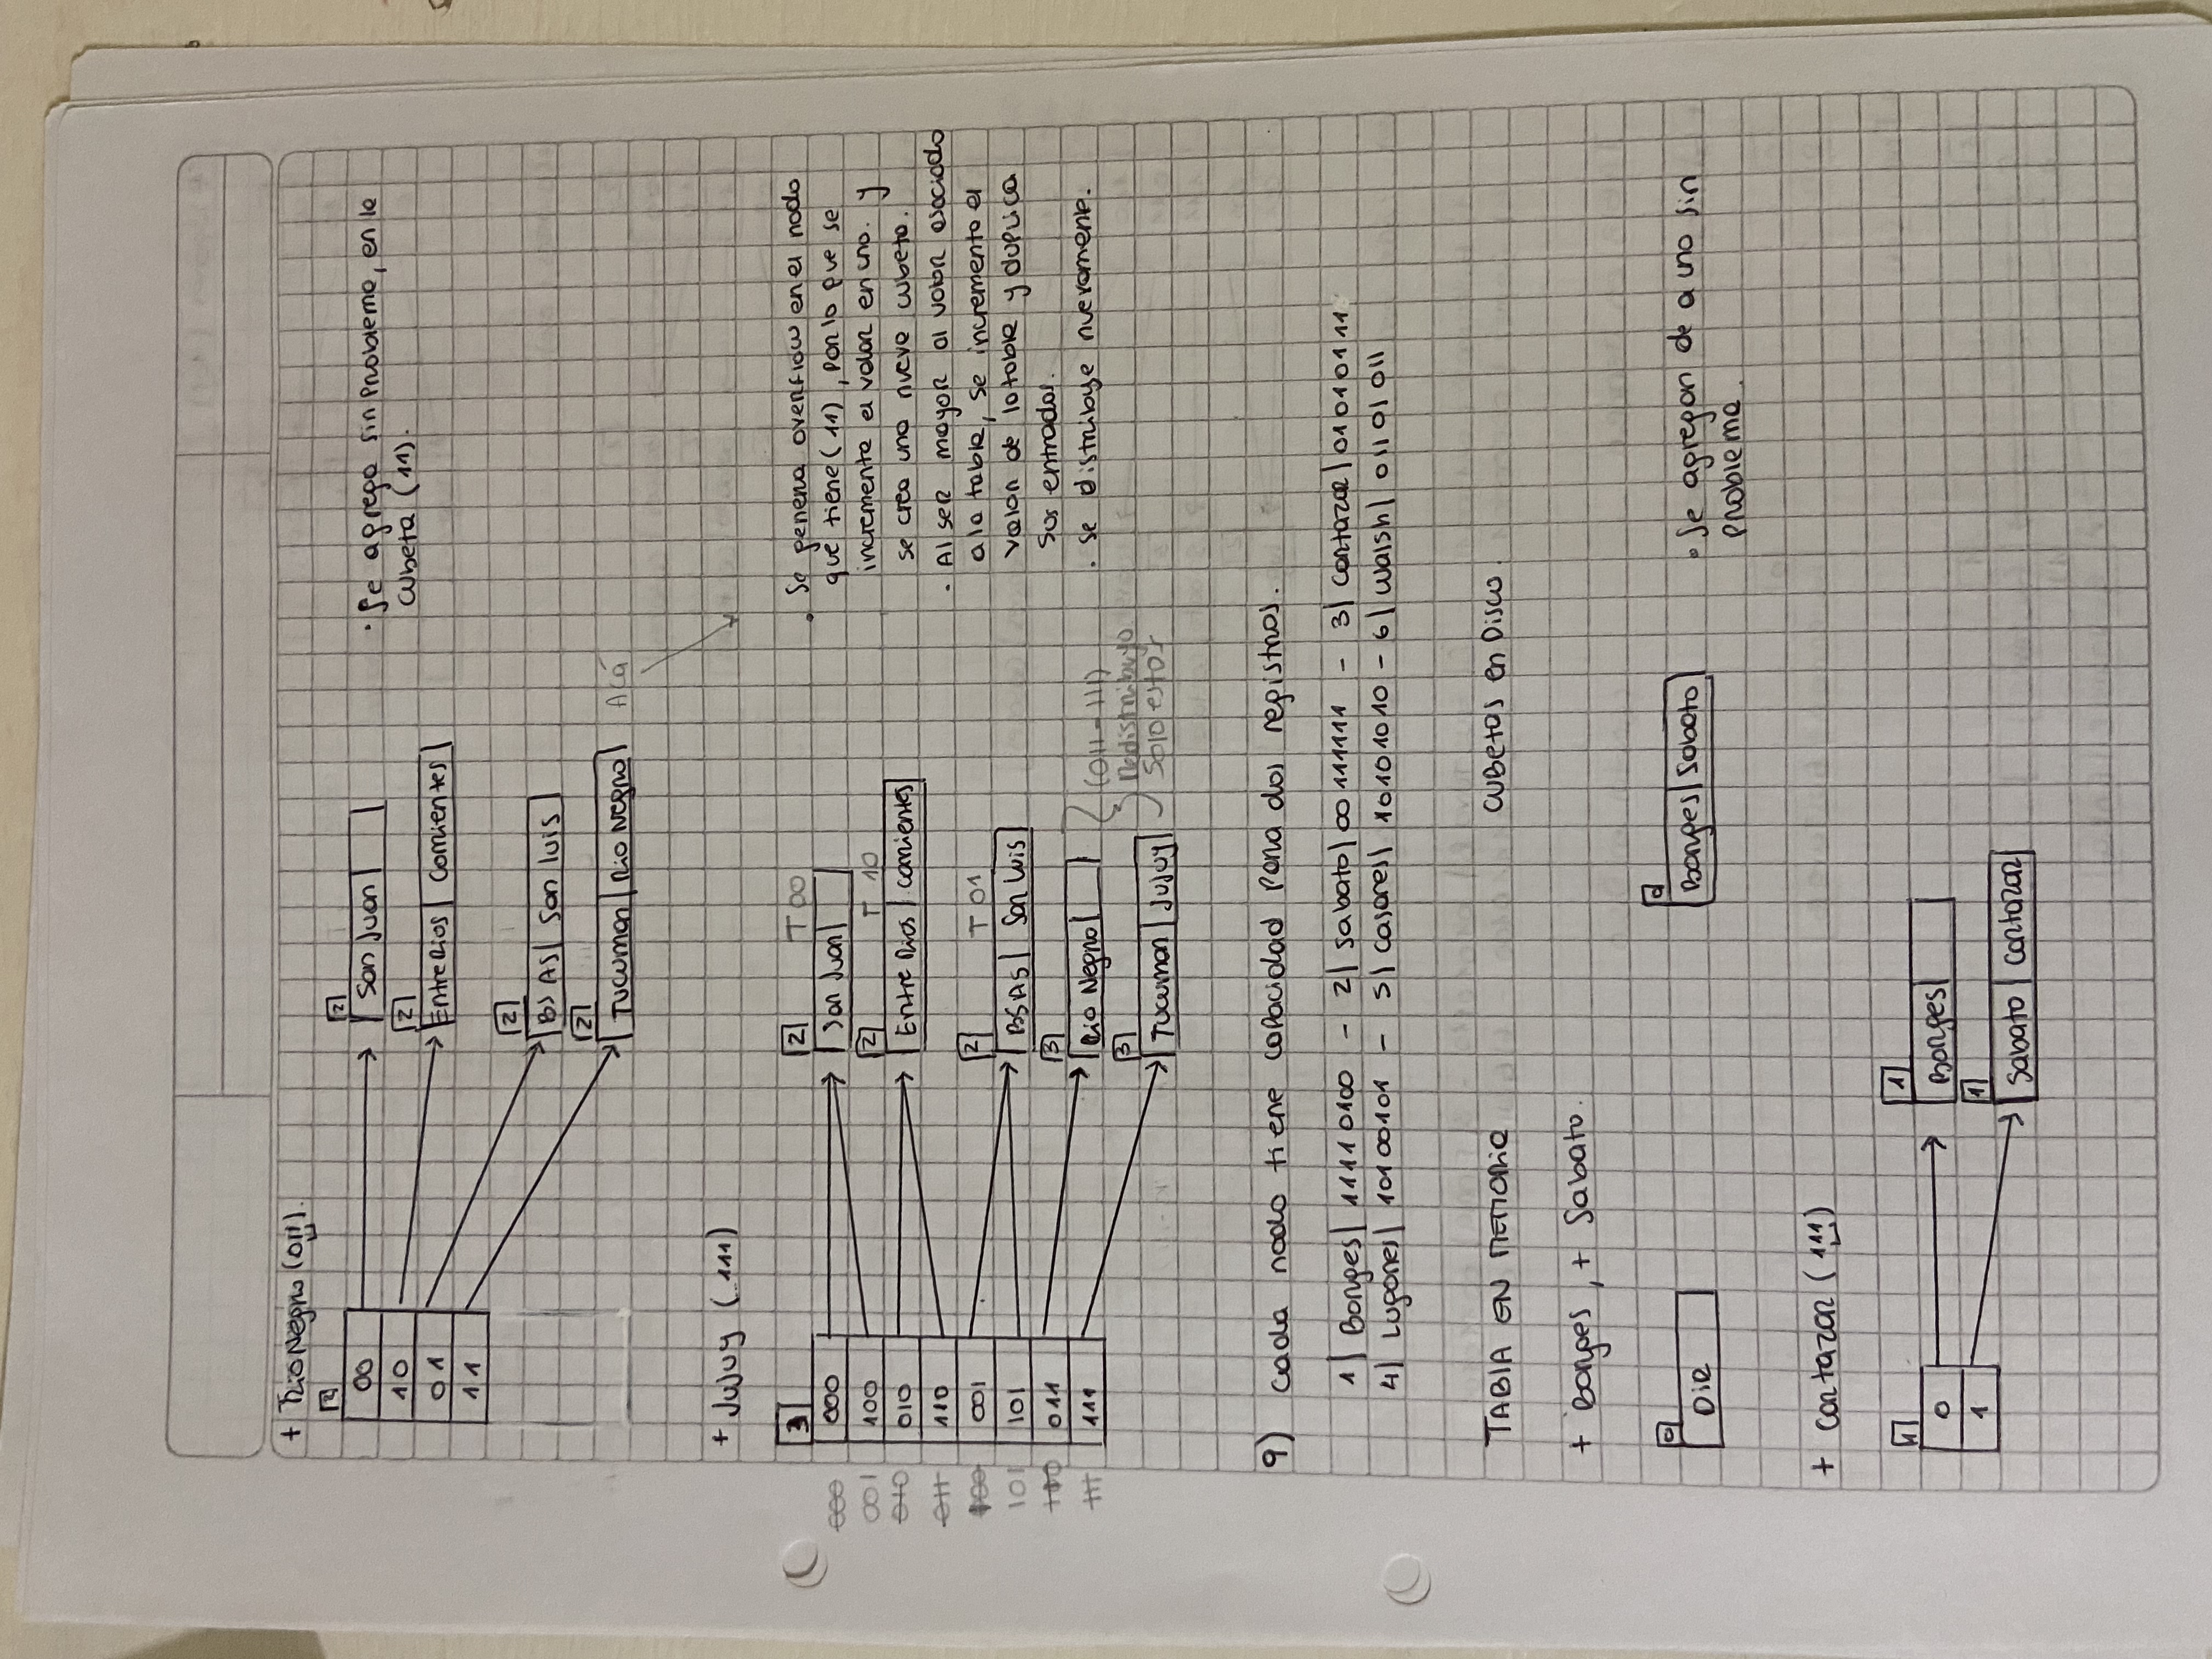 + Rio Negro (011).
2
00
10
01
11
2
San Juan
2
Entre Rios | Corrientes
2
BS AS | San Luis
2
Tucuman | Rio Negro
Acá
· Se agrega sin problema, en la
cubeta (11).
+ Jujuy (111)
3
000 000
001 100
010 010
011 110
100 001
101 101
110 011
111 111
2 T 00
San Juan
2 T 10
Entre Rios | Corrientes
2 T 01
BS AS | San Luis
3
Rio Negro
3
Tucuman | Jujuy
(011-111)
Redistribuyo
Solo estos
· Se genera overflow en el nodo
que tiene (11), por lo que se
incrementa el valor en uno. y
se crea una nueva cubeta.
· Al ser mayor al valor asociado
a la tabla, se incrementa el
valor de la tabla y duplica
sus entradas.
· Se distribuye nuevamente.
9) Cada nodo tiene capacidad para dos registros.
1| Borges | 11110100 - 2| Sabato | 00111111 - 3| Cortazar | 01010111
4| Lugones | 10100101 - 5| Casares | 10101010 - 6| Walsh | 01101011
TABLA EN MEMORIA
CUBETAS en Disco
+ Borges, + Sabato.
0
DIR
0
Borges | Sabato
· Se agregan de a uno sin
problema.
+ Cortazar (111)
1
0
1
1
Borges
1
Sabato | Cortazar